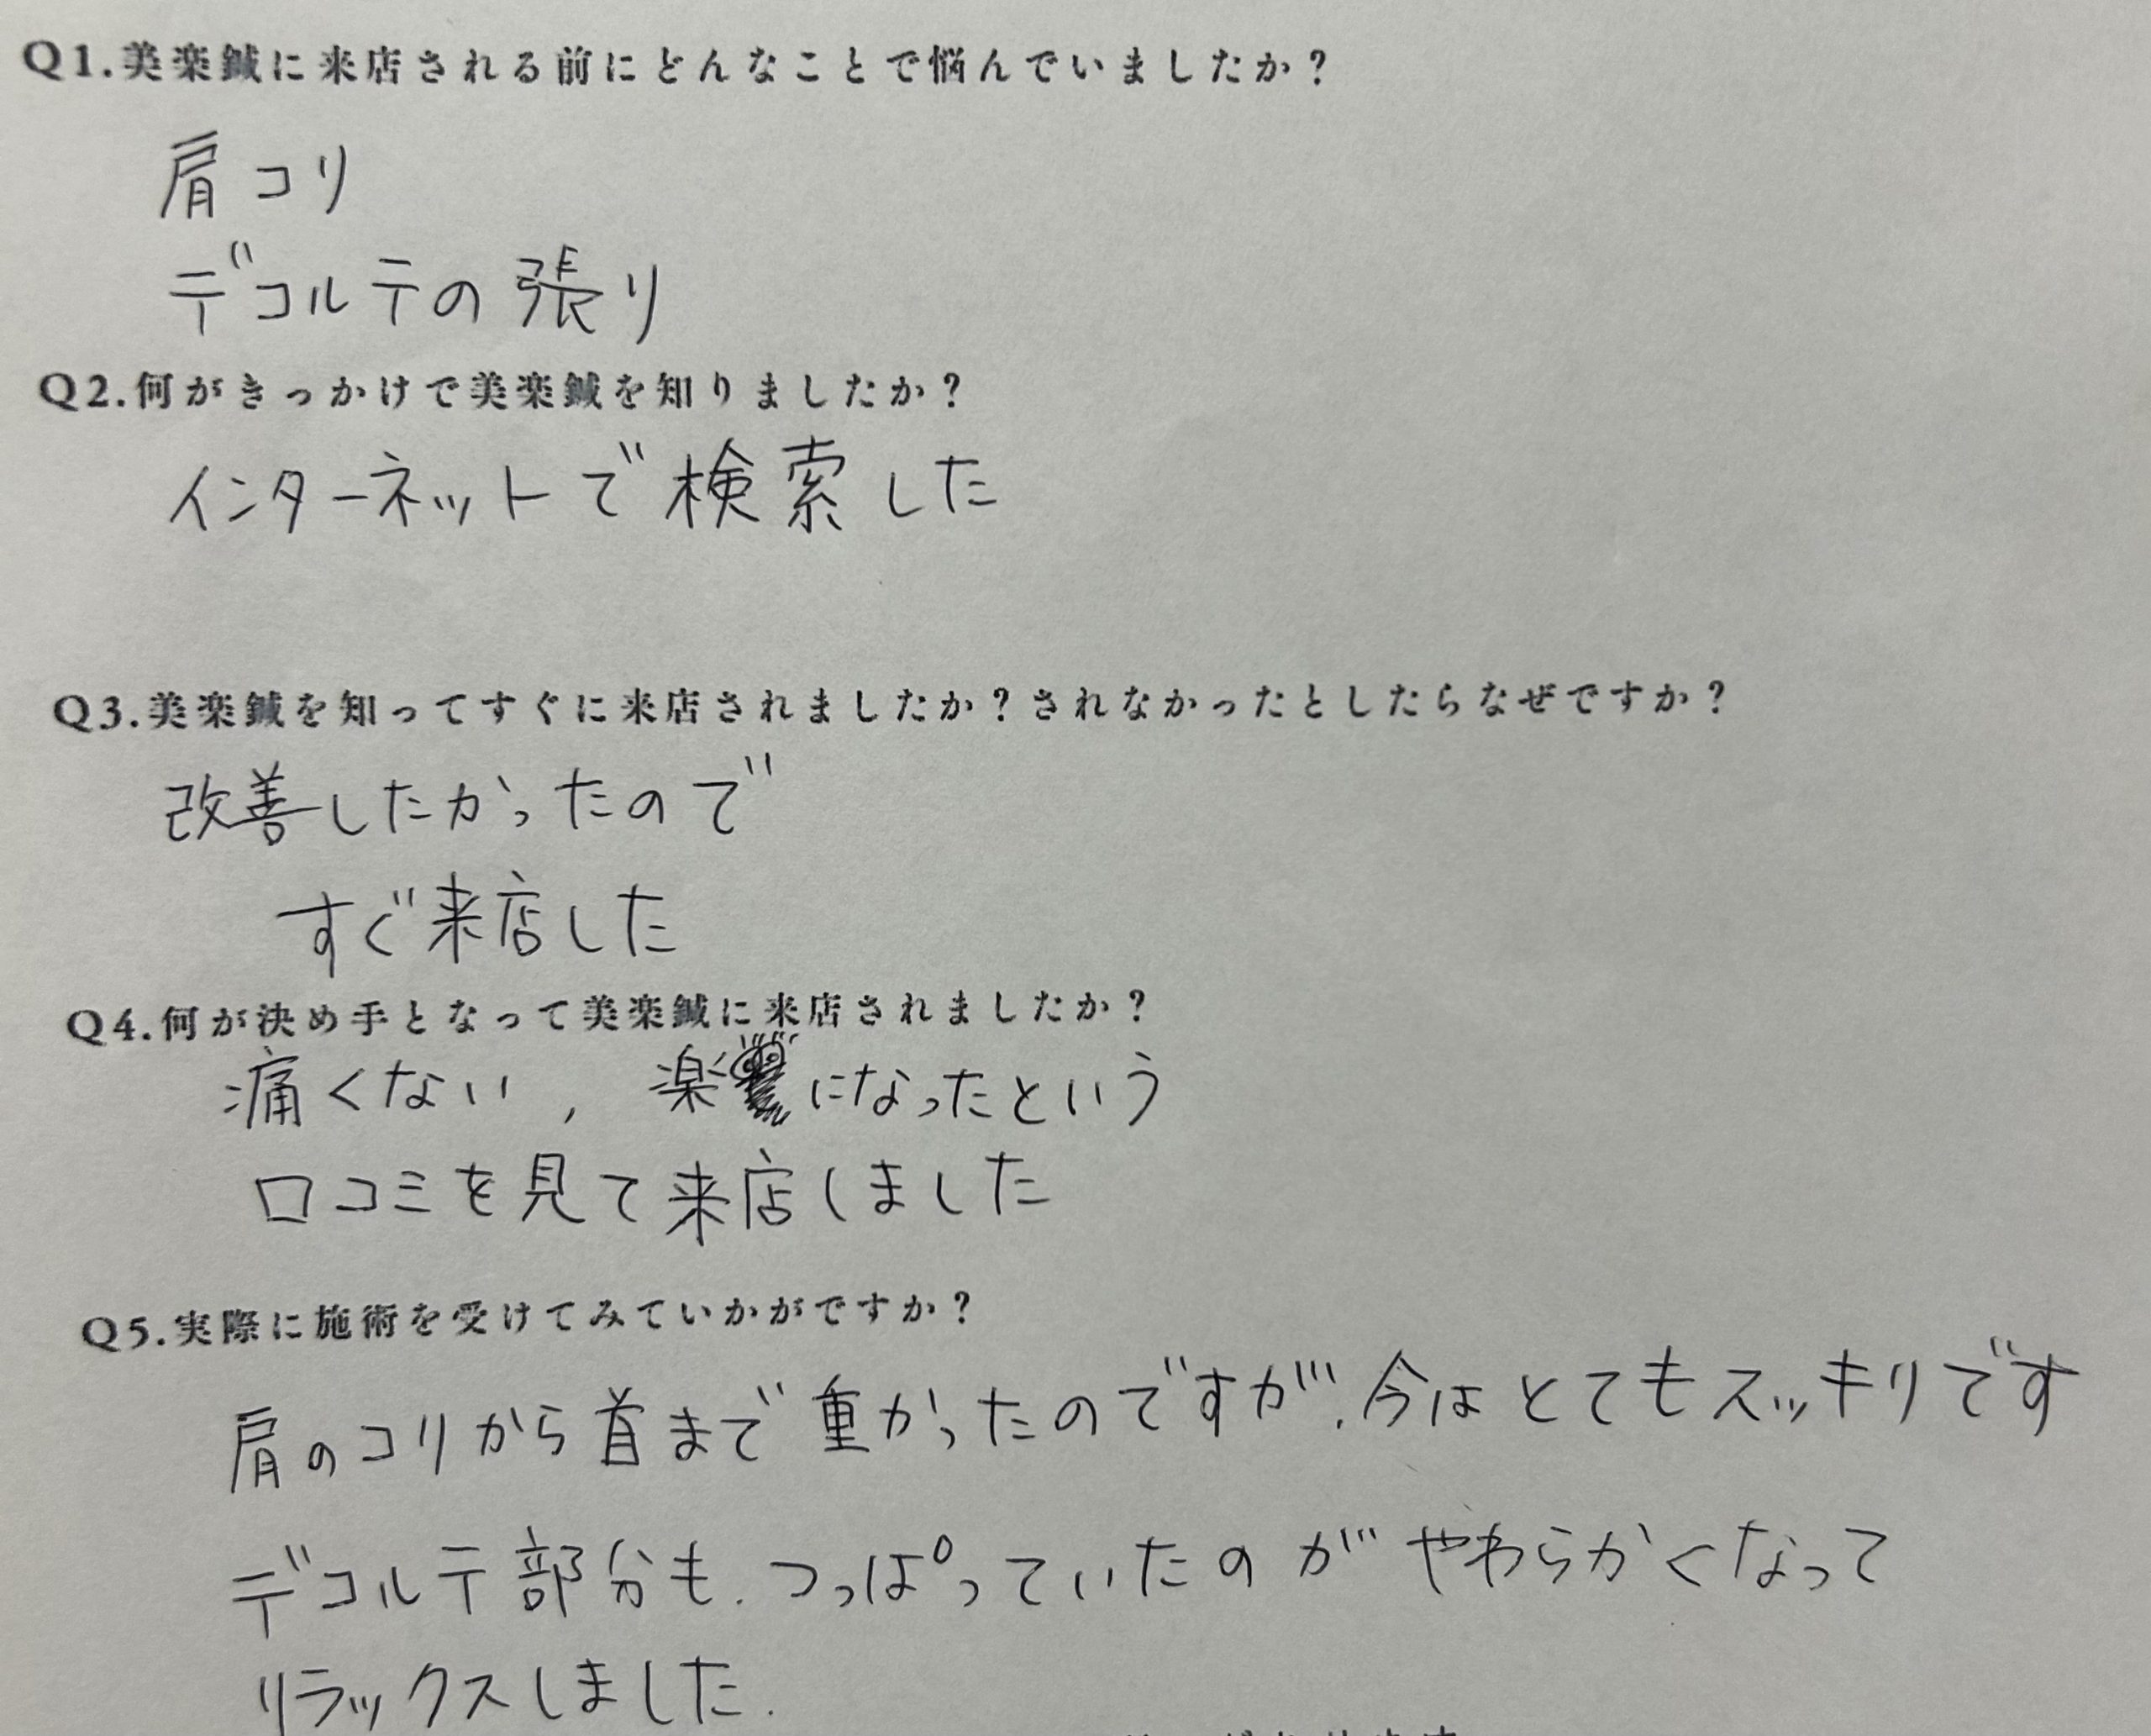 Q1.美楽鍼に来店される前にどんなことで悩んでいましたか？
肩コリ
デコルテの張り
Q2.何がきっかけで美楽鍼を知りましたか？
インターネットで検索した
Q3.美楽鍼を知ってすぐに来店されましたか？されなかったとしたらなぜですか？
改善したかったので
すぐ来店した
Q4.何が決め手となって美楽鍼に来店されましたか？
痛くない, 楽になったという
口コミを見て来店しました
Q5.実際に施術を受けてみていかがですか？
肩のコリから首まで重かったのですが、今はとてもスッキリです
デコルテ部分も、つっぱっていたのがやわらかくなって
リラックスしました.